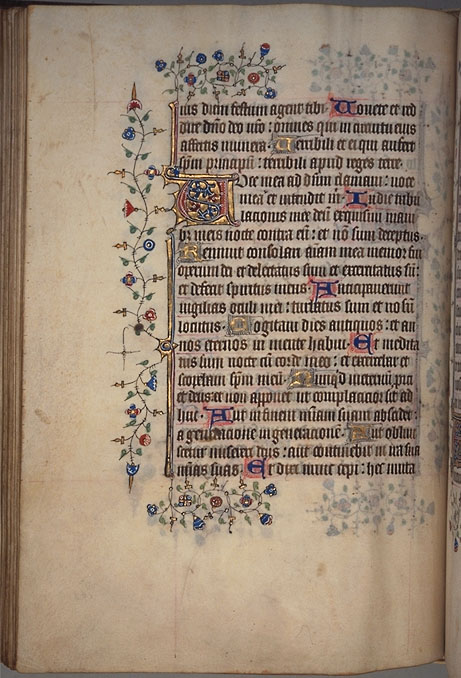 nis diem festum agent tibi. Vouete et red
dite dno deo uro: omnes qui in circuitu eius
affertis munera. Terribili et ei qui aufert
spm principum: terribili apud reges terre.
Voce mea ad dnm clamaui: uoce
mea et intendit m. In die tribu
lacionis mee deum exquisiui mani
bus meis nocte contra eu: et no sum deceptus.
Renuit consolari aiam mea memor fui
dei et delectatus sum et exercitatus su:
et defecit spiritus meus. Anticipauerunt
uigilias oculi mei: turbatus sum et no su
locutus. Cogitaui dies antiquos: et an
nos eternos in mente habui. Et medita
tus sum nocte cu corde meo: et exercitabar et
scopebam spm meu. Nunqd in eternu proi
ciet deus: et non apponet ut complacicior sit ad
huc. Aut in finem miam suam abscidet:
a generacione in generacionem. Aut obliui
scetur misereri deus: aut continebit in ira sua
mias suas. Et dixi nunc cepi: hec muta